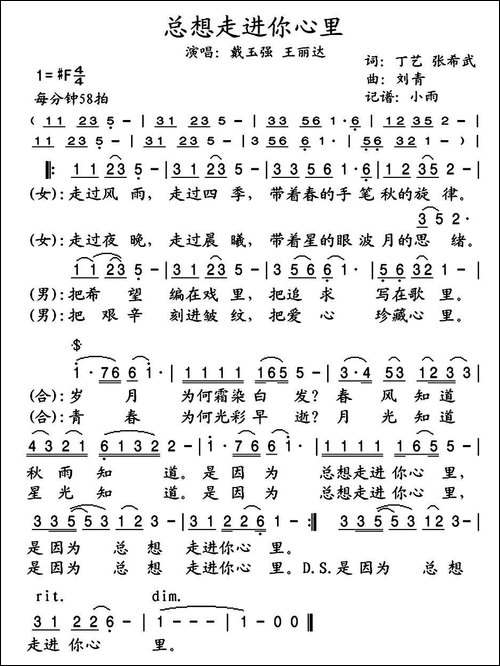 总想走进你心里
演唱：戴玉强 王丽达
词：丁艺 张希武
1=#F 4/4
曲：刘青
每分钟58拍
记谱：小雨
( 1 1 2 3 5 - | 3 1 2 3 5 - | 3 3 5 6 1· 6 | 1 2 3 5 2 - |
1 1 2 3 5 - | 3 1 2 3 5 - | 3 3 5 6 6 - | 5 6 3 2 1 - )
‖: 1 1 2 3 5 - | 3 1 2 3 5 - | 3 3 5 6 1· 6 | 1 2 3 5 2 - |
(女): 走过风 雨, 走过四 季, 带着春的手 笔 秋的旋 律。
3 5 2·
(女): 走过夜 晚, 走过晨 曦, 带着星的眼 波 月的思 绪。
1 1 2 3 5 - | 3 1 2 3 5 - | 3 5 6 6 - | 5 6 3 2 1 - |
(男): 把希 望 编在戏 里, 把追 求 写在歌 里。
(男): 把艰 辛 刻进皱 纹, 把爱 心 珍藏心 里。
1· 7 6 6 1· | 1 1 1 1 1 6 5 5 - | 3· 4 5 3 1 2 3 |
(合): 岁 月 为何霜染 白 发? 春 风 知道
(合): 青 春 为何光彩 早 逝? 月 光 知道
4 3 2 1 6 1 3 2 2 - | 1· 7 6 6 1· | 1 1 1 1 1 6 5 5 - |
秋 雨 知 道。是 因 为 总想走进 你心 里,
星 光 知 道。是 因 为 总想走进 你心 里,
3 3 5 5 3 1 2 3 | 3 1 2 2 6 1 - :‖ 3 3 5 5 3 1 2 3 |
是 因为 总 想 走进你心 里。
是 因为 总 想 走进你心 里。D.S.是 因为 总 想
rit. dim.
3 1 2 2 6 | 1 - - - | 1 - 0 0 ‖
走进 你心 里。